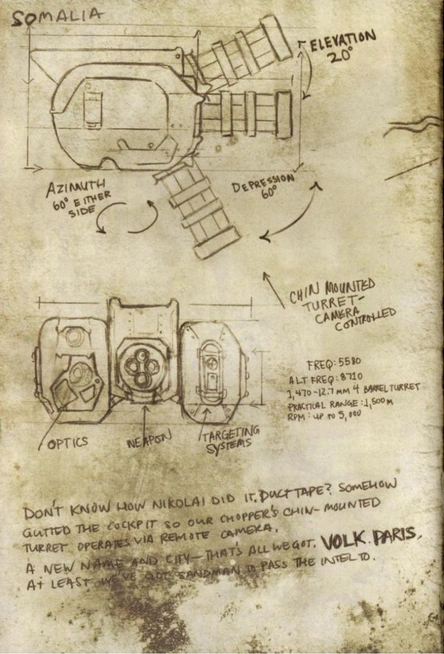 SOMALIA
ELEVATION
20°
AZIMUTH
60° EITHER
SIDE
DEPRESSION
60°
CHIN MOUNTED
TURRET-
CAMERA
CONTROLLED
FREQ: 5580
ALT FREQ: 8710
1,470-12.7 MM 4 BARREL TURRET
PRACTICAL RANGE: 1,500M
RPM: UP TO 5,000
OPTICS
WEAPON
TARGETING
SYSTEMS
DON'T KNOW HOW NIKOLAI DID IT. DUCT TAPE? SOMEHOW
GUTTED THE COCKPIT SO OUR CHOPPER'S CHIN-MOUNTED
TURRET OPERATES VIA REMOTE CAMERA.
A NEW NAME AND CITY-THAT'S ALL WE GOT. VOLK. PARIS.
AT LEAST WE'VE GOT SANDMAN TO PASS THE INTEL TO.